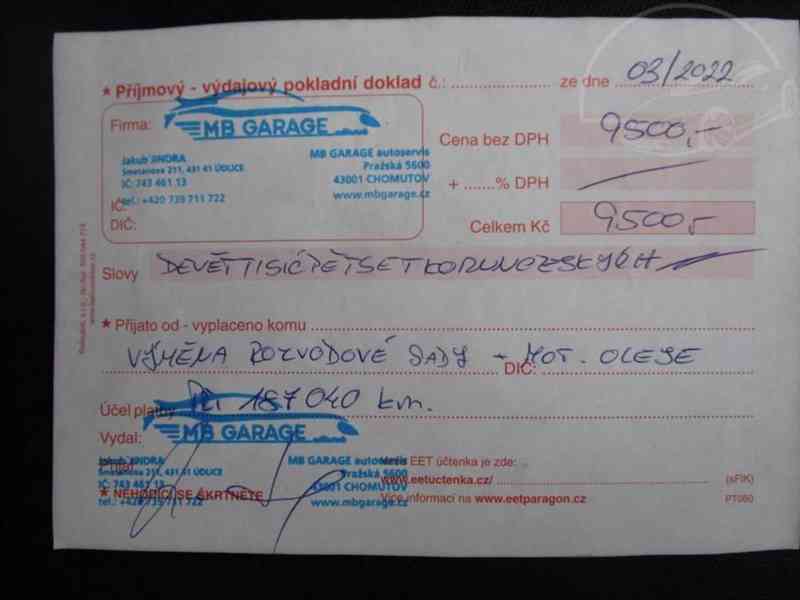 ★ Příjmový - výdajový pokladní doklad č.: ze dne 03/2022
Firma: MB GARAGE
Cena bez DPH 9500,-
Jakub JINDRA
Smetanova 211, 431 41 ÚDLICE
IČ: 743 461 13
tel.: +420 739 711 722
MB GARAGE autoservis
Pražská 5600
43001 CHOMUTOV
www.mbgarage.cz
IČ:
DIČ:
+ .......% DPH
Celkem Kč 9500,-
Slovy DEVĚTTISÍCPĚTSETKORUNČESKÝCH
★ Přijato od - vyplaceno komu
VÝMĚNA ROZVODOVÉ SADY + MOT. OLEJE
DIČ:
Účel platby PŘI 187 040 km.
Vydal:
MB GARAGE
Jakub JINDRA
Smetanova 211, 431 41 ÚDLICE
IČ: 743 461 13
tel.: +420 739 711 722
MB GARAGE autoservis
Pražská 5600
43001 CHOMUTOV
www.mbgarage.cz
★ NEHODÍCÍ SE ŠKRTNĚTE
EET účtenka je zde:
www.eetuctenka.cz/ (sFIK)
Více informací na www.eetparagon.cz
PT060